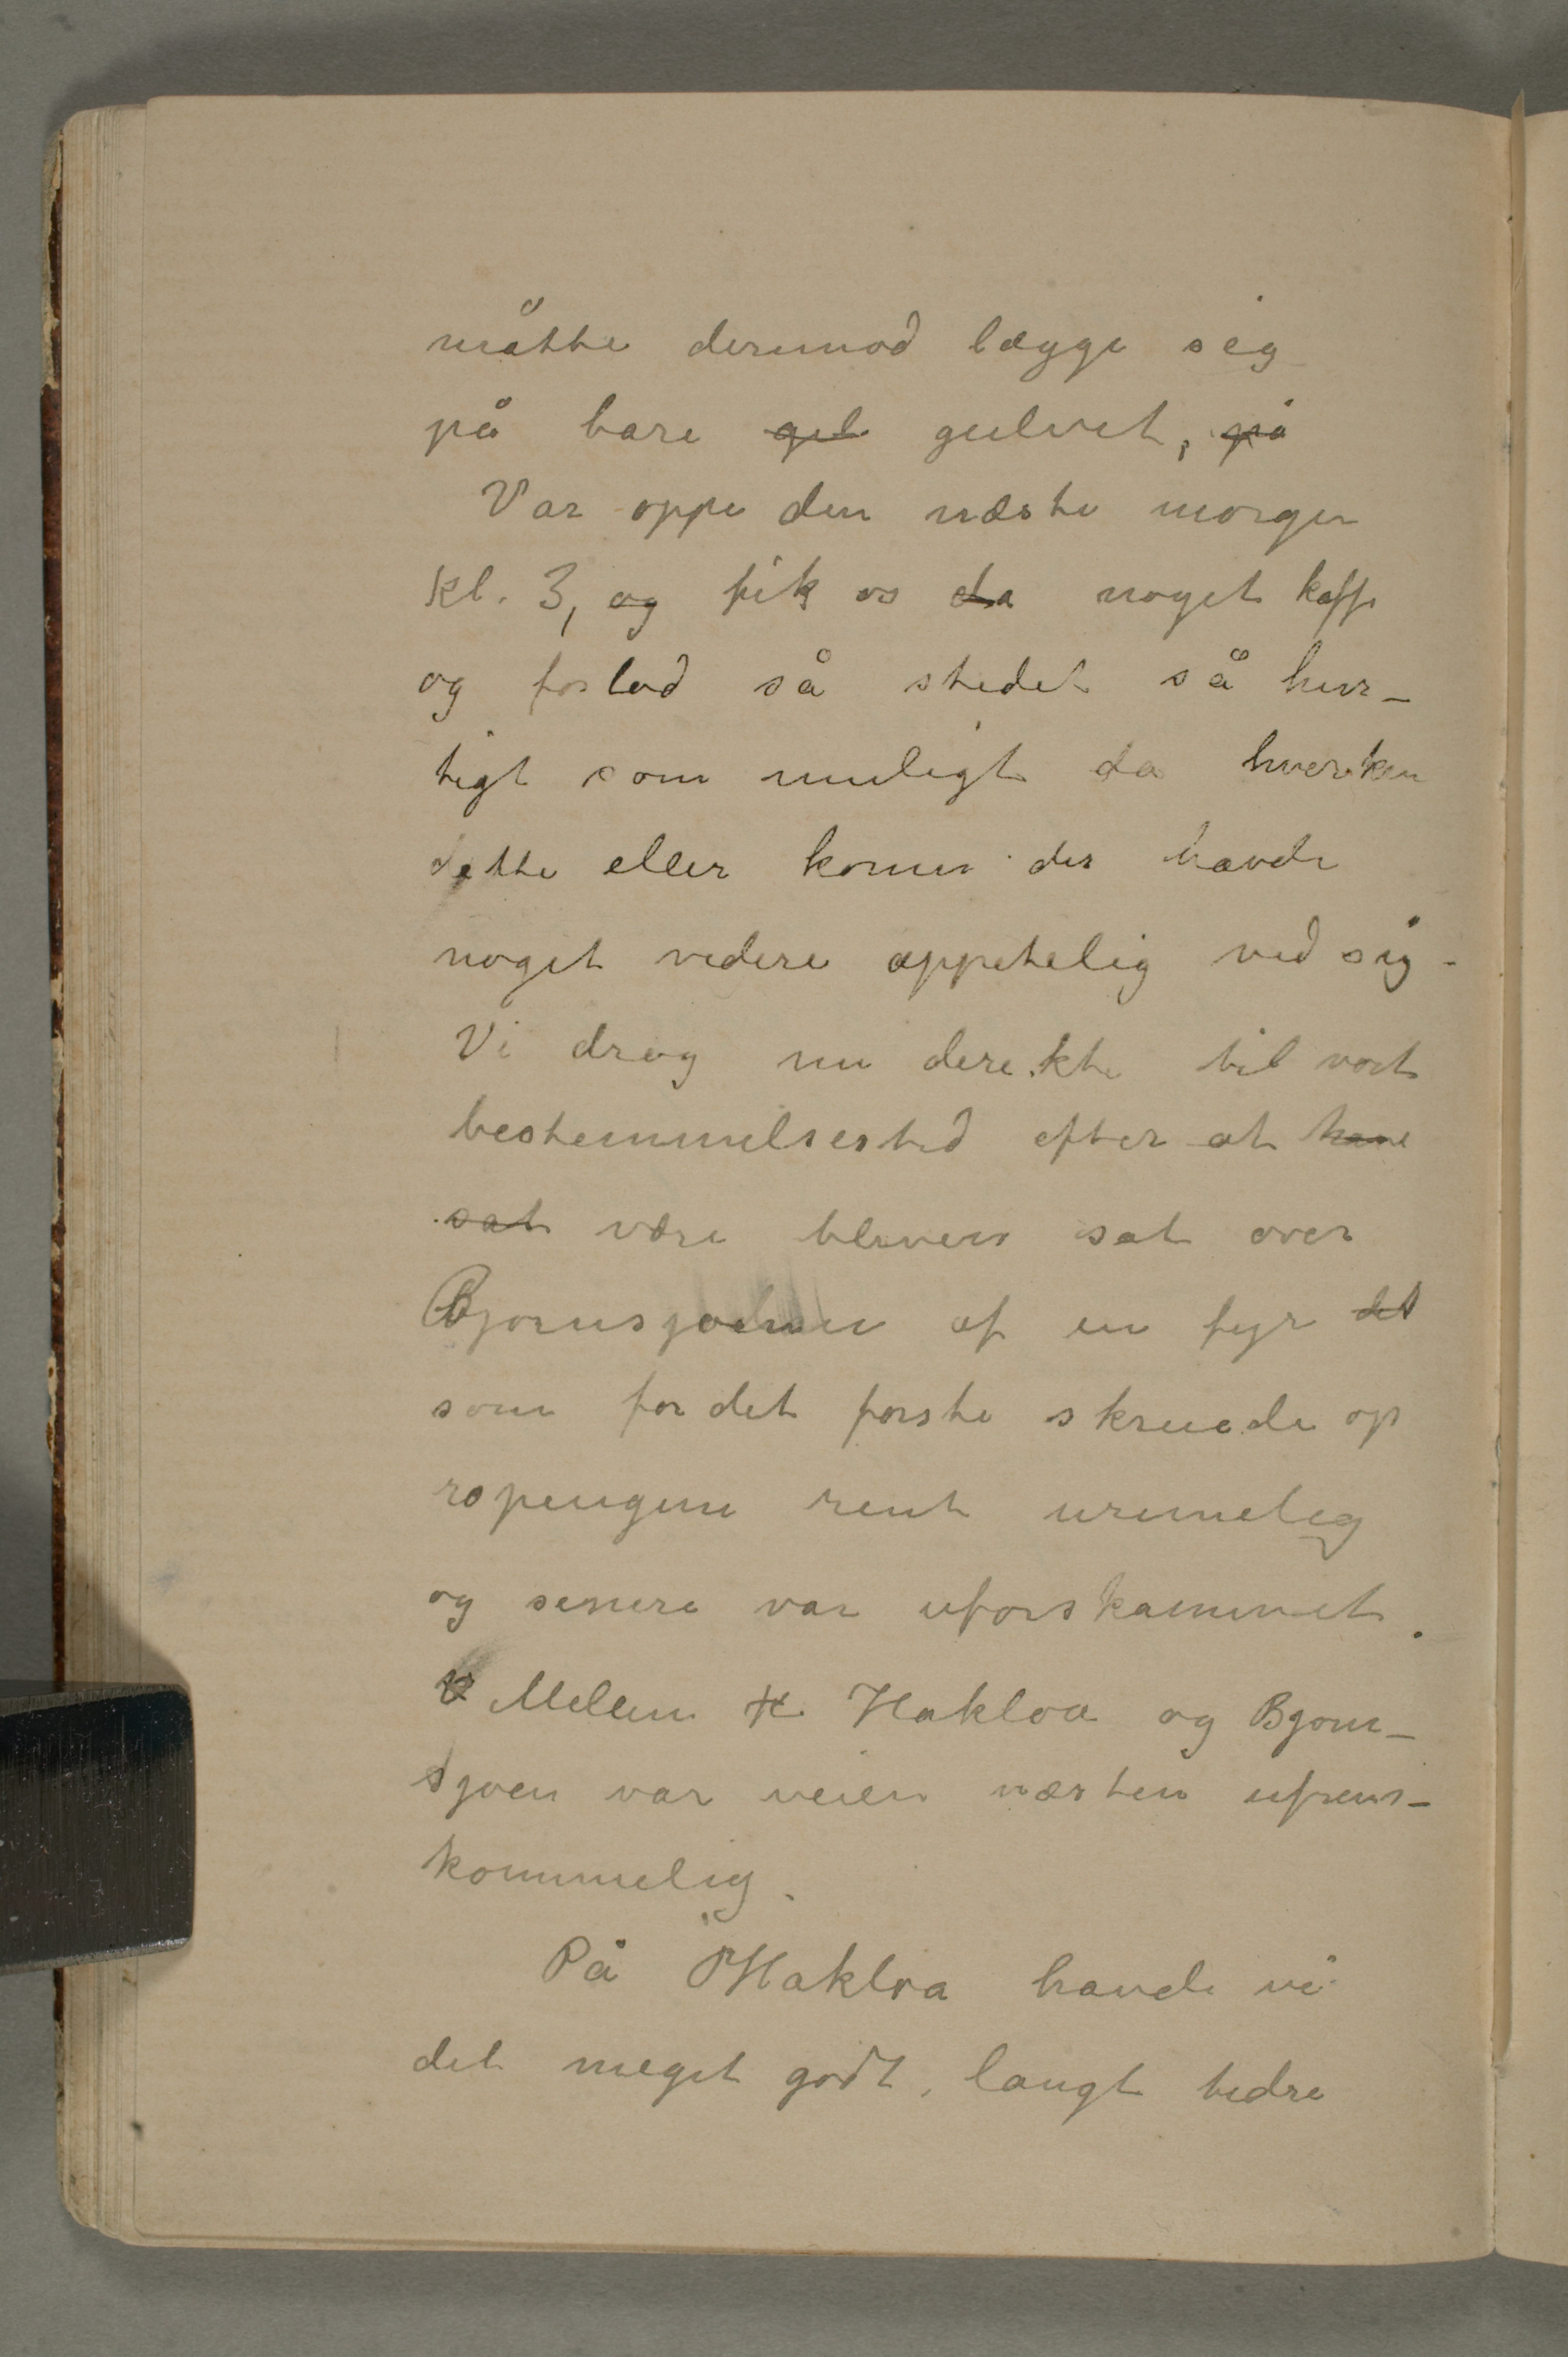 måtte derimod lægge sig
på bare gul gulvet, på
Var oppe den næste morgen
Kl. 3, og fik os da noget kaffe
og forlod så stedet så hur-
tigt som muligt da hverken
dette eller konen der havde
noget videre appetelig ved sig.
Vi drog nu derekte til vort
bestemmelsested efter at have
sat være bleven sat over
Bjornsjoen af en fyr det
som for det forste skruede op
ropengene rent urimelig
og senere var uforskammet.
V Mellem H Hakloa og Bjorn-
sjoen var veien næsten ufrem-
kommelig.
På Hakloa havde vi
det meget godt, langt bedre